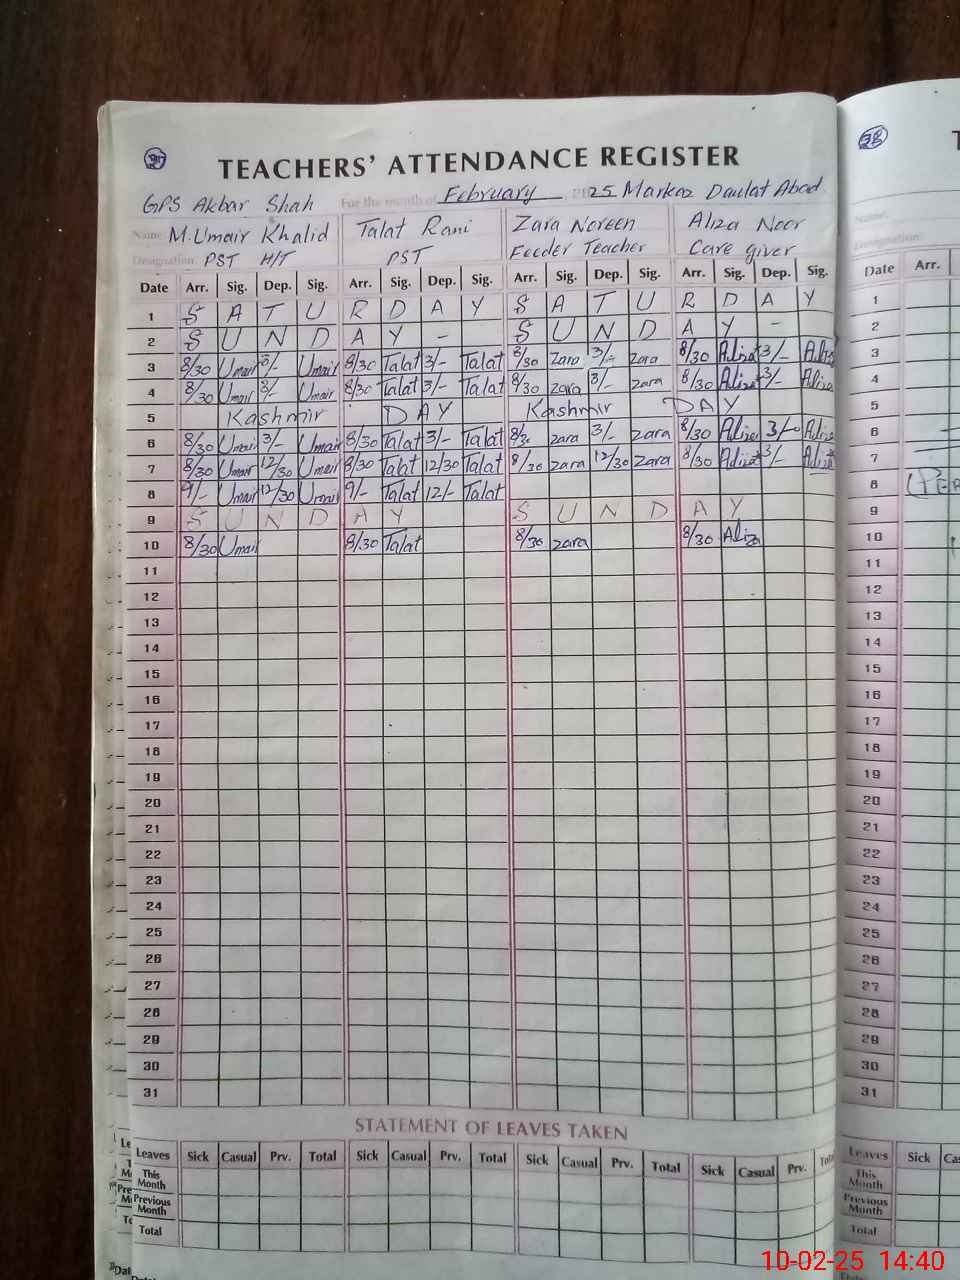 TEACHERS' ATTENDANCE REGISTER
GPS Akbar Shah For the month of February 25 Markaz Daulat Abad
Name M.Umair Khalid Talat Rani Zara Noreen Aliza Noor
Designation PST H/T PST Feeder Teacher Care giver
Date Arr. Sig. Dep. Sig. Arr. Sig. Dep. Sig. Arr. Sig. Dep. Sig. Arr. Sig. Dep. Sig.
1 S A T U R D A Y S A T U R D A Y
2 S U N D A Y - S U N D A Y -
3 8/30 Umair 3/- Umair 8/30 Talat 3/- Talat 8/30 Zara 3/- zara 8/30 Aliza 3/- Aliza
4 8/30 Umair 3/- Umair 8/30 Talat 3/- Talat 8/30 zara 3/- zara 8/30 Aliza 3/- Aliza
5 Kashmir DAY Kashmir DAY
6 8/30 Umair 3/- Umair 8/30 Talat 3/- Talat 8/30 zara 3/- zara 8/30 Aliza 3/- Aliza
7 8/30 Umair 12/30 Umair 8/30 Talat 12/30 Talat 8/30 zara 12/30 Zara 8/30 Aliza 3/- Aliza
8 9/- Umair 12/30 Umair 9/- Talat 12/- Talat
9 S U N D A Y S U N D A Y
10 8/30 Umair 8/30 Talat 8/30 zara 8/30 Aliza
11
12
13
14
15
16
17
18
19
20
21
22
23
24
25
26
27
28
29
30
31
STATEMENT OF LEAVES TAKEN
Leaves Sick Casual Prv. Total Sick Casual Prv. Total Sick Casual Prv. Total Sick Casual Prv.
This Month
Previous Month
Total
38
Name:
Designation:
Date Arr.
1
2
3
4
5
6
7
8
9
10
11
12
13
14
15
16
17
18
19
20
21
22
23
24
25
26
27
28
29
30
31
Leaves Sick
This Month
Previous Month
Total
10-02-25 14:40